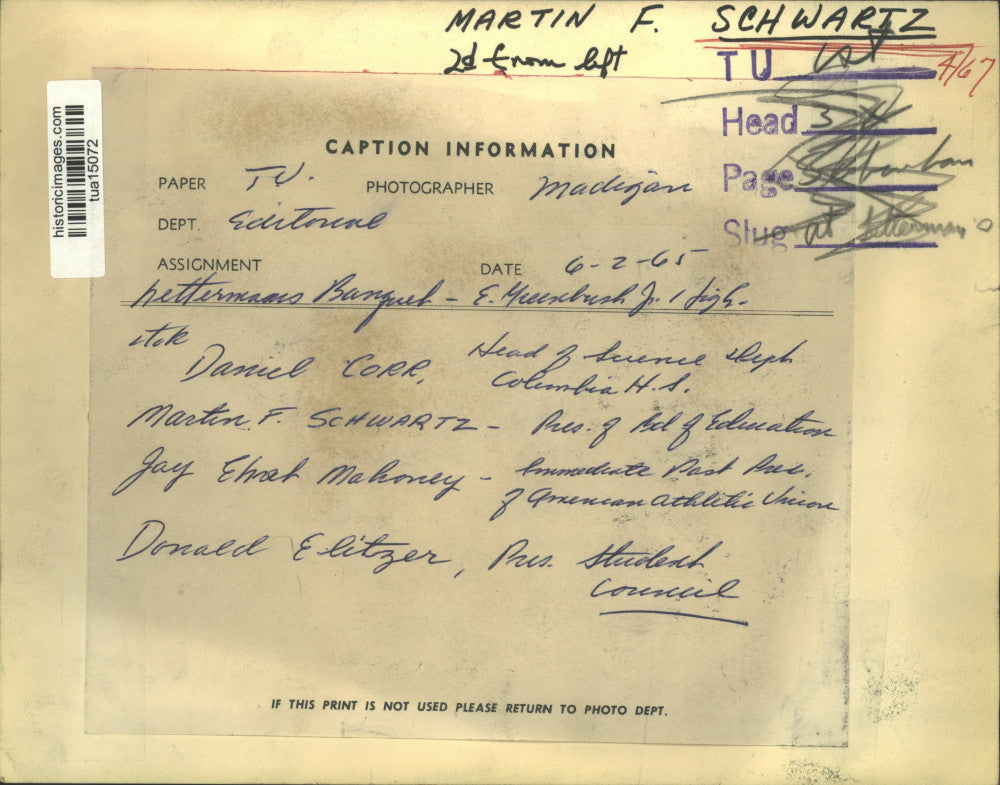 MARTIN F. SCHWARTZ
2d from left
TU
4/67
Head 3
Page Suburban
Slug at Letterman's
historicimages.com
tua15072
CAPTION INFORMATION
PAPER T.U. PHOTOGRAPHER Madigan
DEPT. Editorial
ASSIGNMENT DATE 6-2-65
Lettermans Banquet - E. Greenbush Jr. High.
Daniel CORR, Head of Science Dept
Columbia H.S.
Martin F. SCHWARTZ - Pres. of Bd of Education
Jay Ehret Mahoney - Immediate Past Pres.
of American Athletic Union
Donald Elitzer, Pres. Student
Council
IF THIS PRINT IS NOT USED PLEASE RETURN TO PHOTO DEPT.